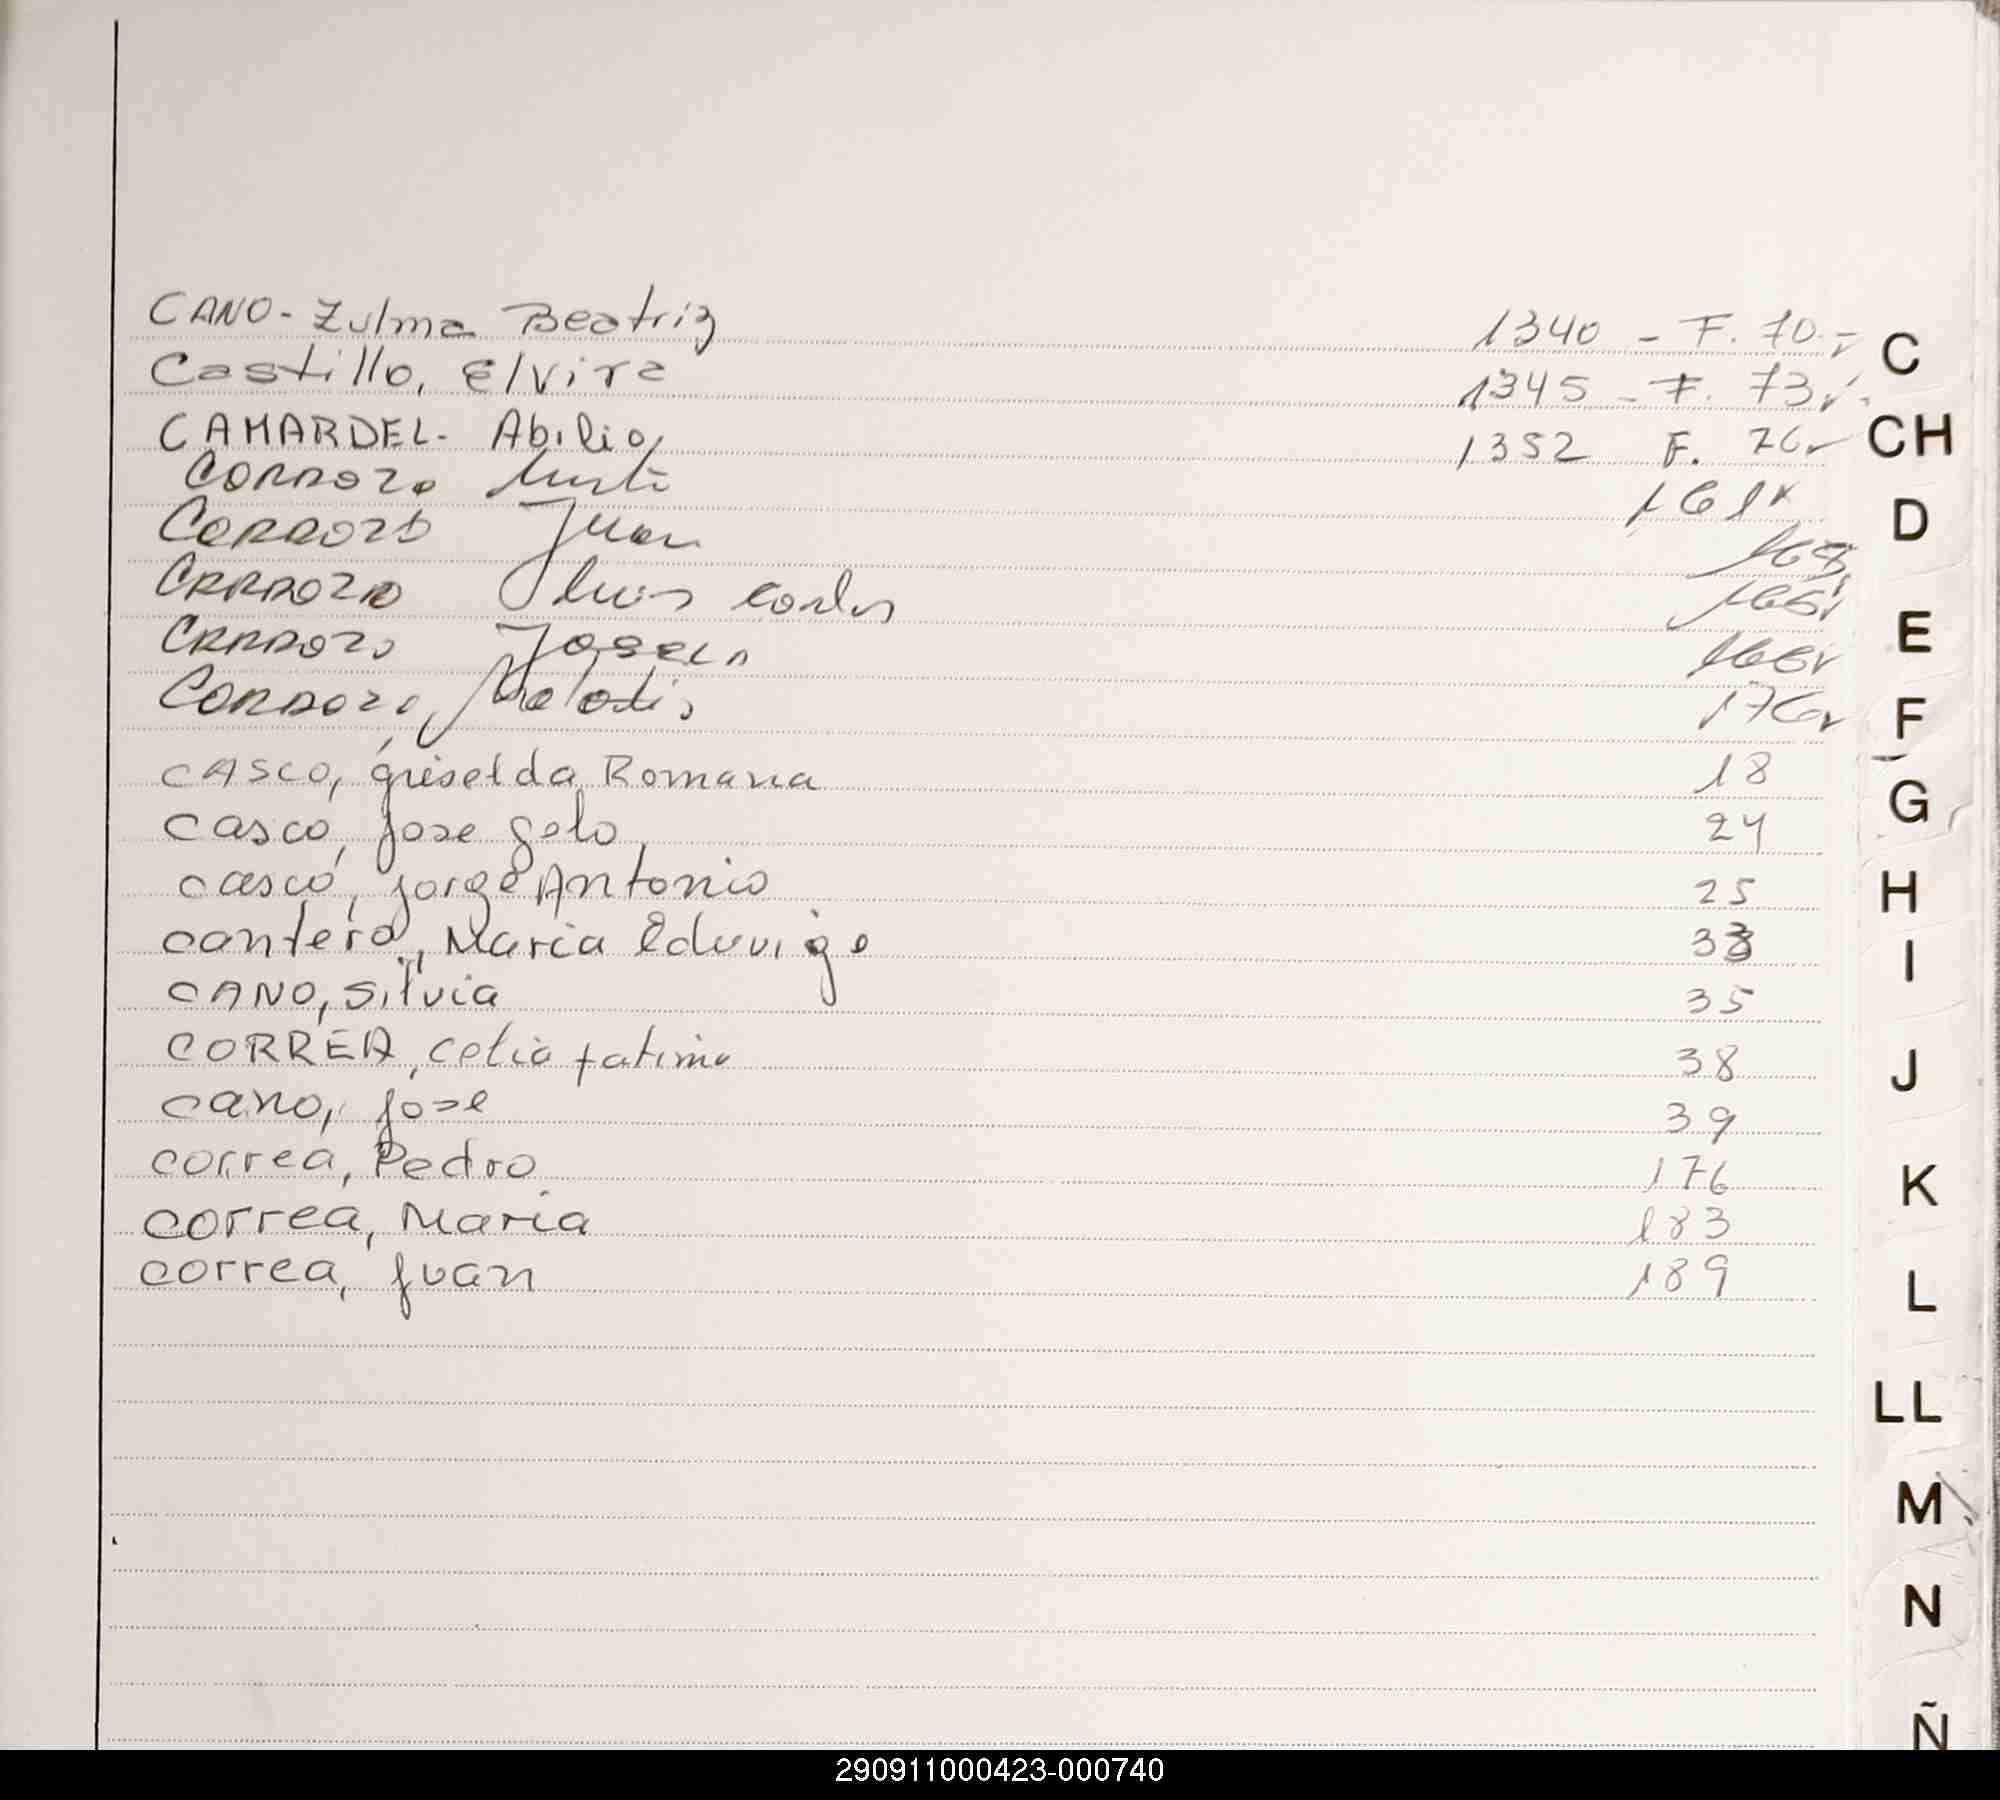 CANO - Zulma Beatriz 1340 - F. 70 v
Castillo, Elvira 1345 - F. 73 v.
CAMARDEL - Abilio 1352 F. 76 v
Cordozo 161 v
Juan
Luis Carlos 166 v
Cardozo 166 v
176 v
CASCO, Griselda Romana 18
Casco, Jose Gelo 24
Casco, Jorge Antonio 25
Cantero, Maria Eduvige 33
CANO, Silvia 35
CORREA, Celia Fatima 38
Cano, Jose 39
Correa, Pedro 176
Correa, Maria 183
Correa, Juan 189
C
CH
D
E
F
G
H
I
J
K
L
LL
M
N
Ñ
290911000423-000740